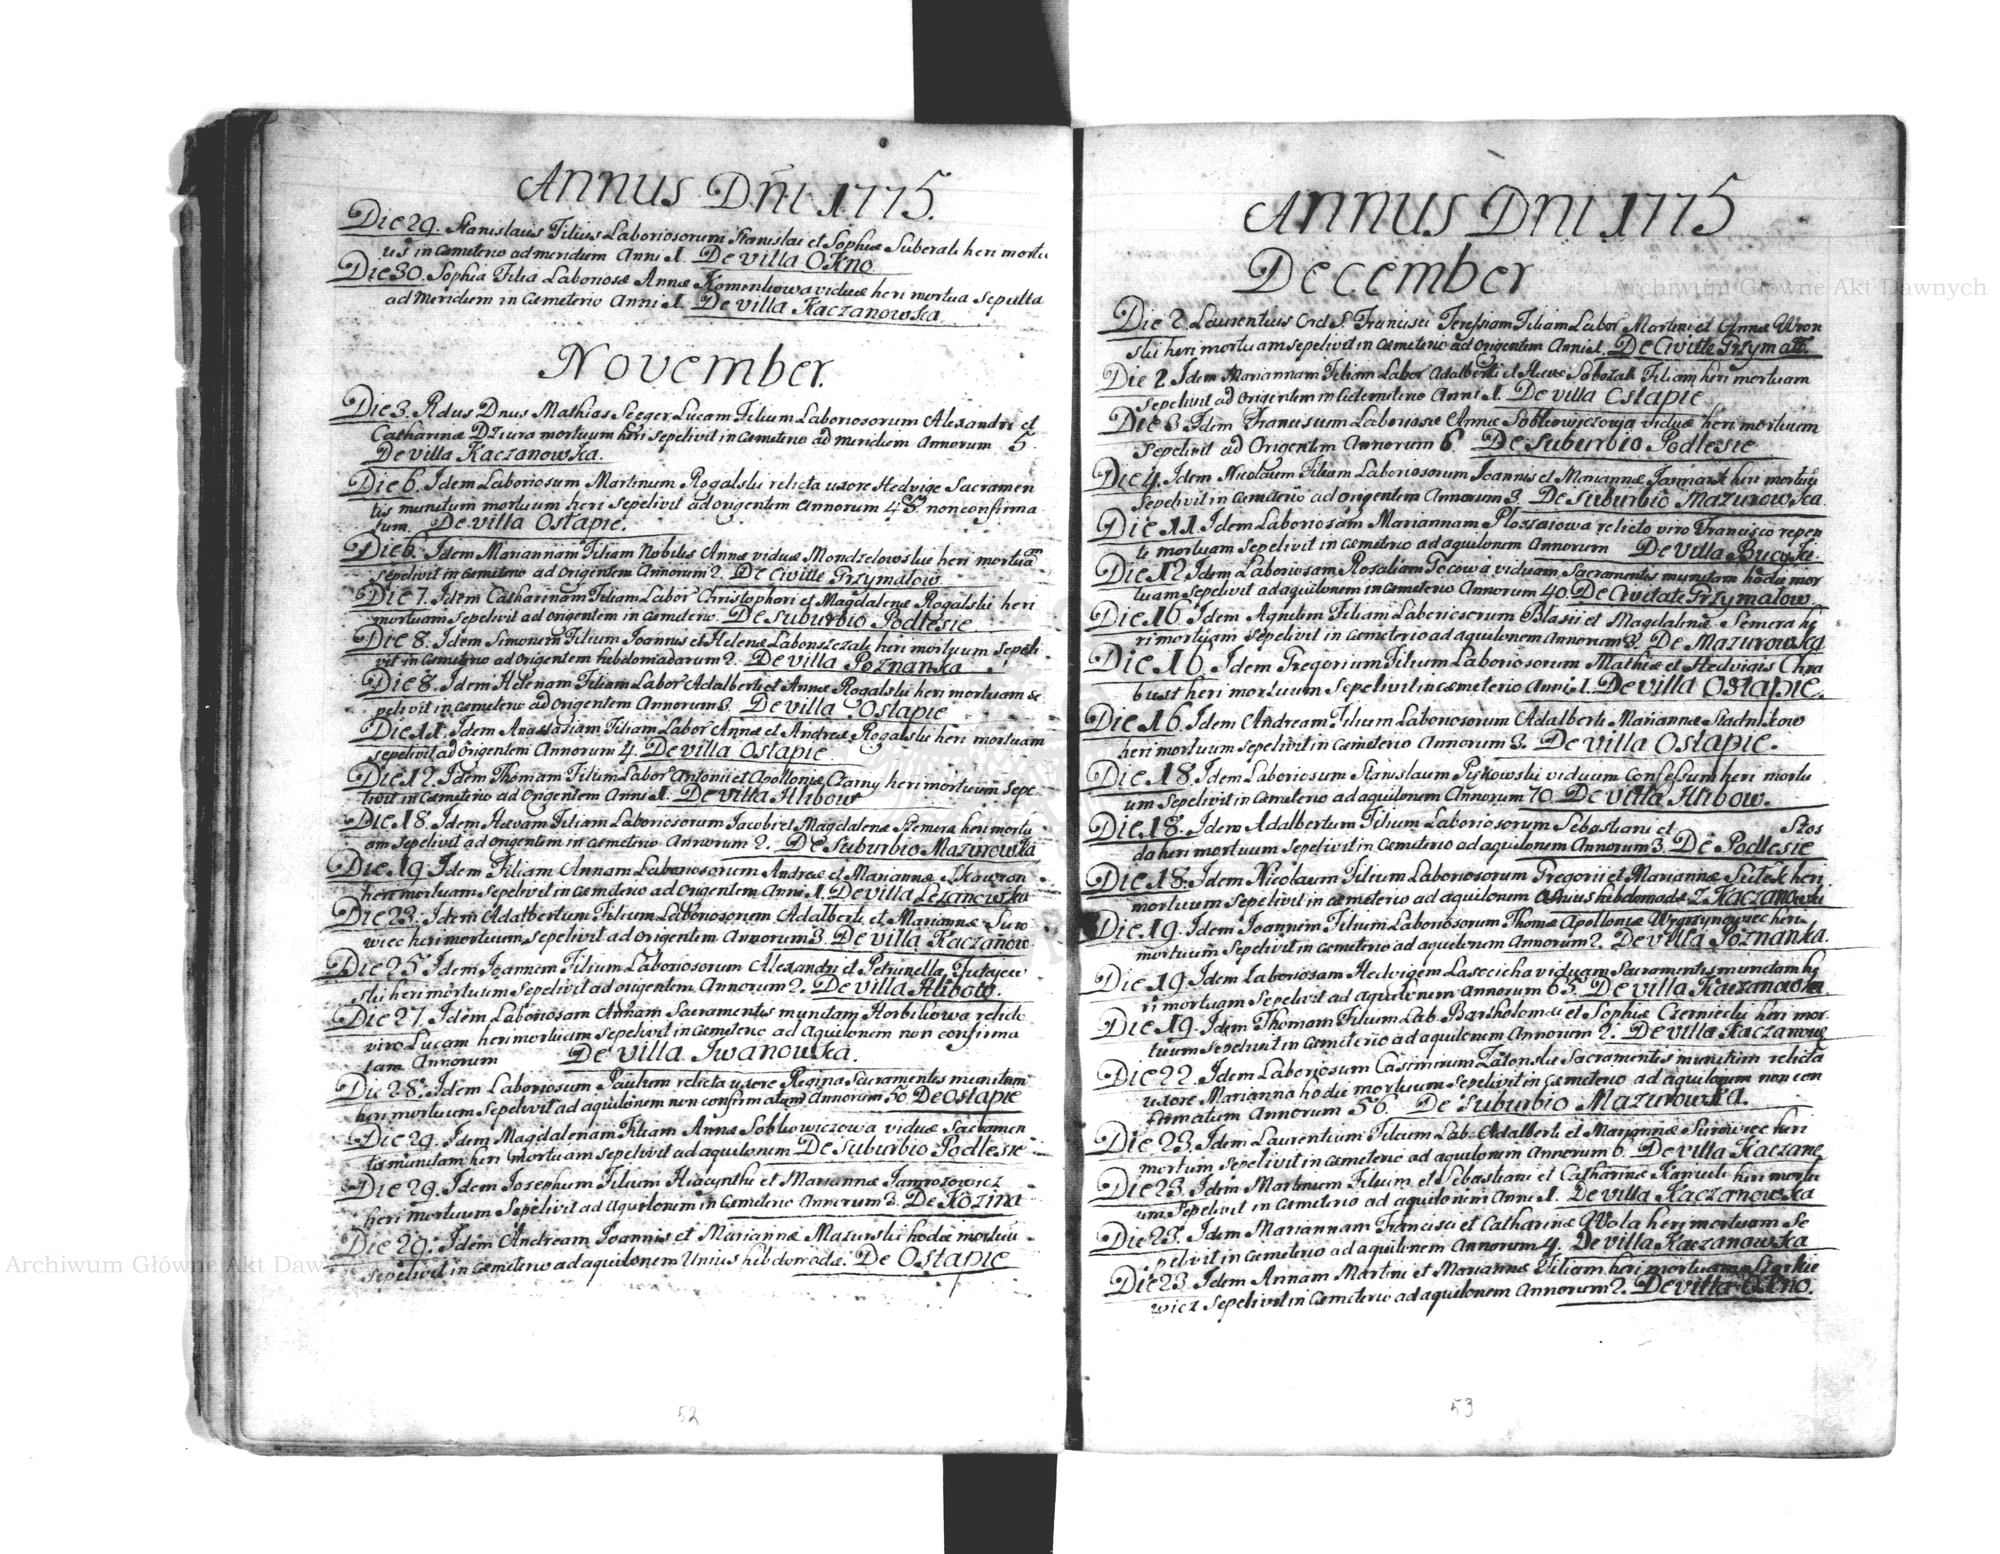 Annus Dñi 1775.
Die 29. Stanislaus Filius Laboriosorum Stanislai et Sophiæ Suberak heri mortu
us in Cæmeterio ad meridiem Anni 1. De villa Okno
Die 30. Sophia Filia Laboriosæ Annæ Homenkowa viduæ heri mortua sepulta
ad Meridiem in Cæmeterio Anni 1. De villa Kaczanowka
November.
Die 3. Rdus Dnus Mathias Seeger Lucam Filium Laboriosorum Alexandri et
Catharinæ Dziura mortuum heri sepelivit in Cæmeterio ad meridiem Annorum 5
De villa Kaczanowka.
Die 6. Idem Laboriosum Martinum Rogalski relicta uxore Hedvige Sacramen
tis munitum mortuum heri sepelivit ad origentem Annorum 48. non confirma
tum. De villa Ostapie.
Die 6. Idem Mariannam Filiam Nobilis Annæ viduæ Mondzelowskie heri mortuam
sepelivit in Cæmeterio ad Origentem Annorum 2. De Civitte Grzymalow.
Die 7. Idem Catharinam Filiam Labor Christophori et Magdalenæ Rogalski heri
mortuam sepelivit ad origentem in Cæmeterio. De Suburbio Podlesie
Die 8. Idem Simonem Filium Joannis et Helenæ heri mortuum sepeli
vit in Cæmeterio ad Origentem hebdomadarum 2. De villa Poznanka
Die 8. Idem Helenam Filiam Labor Adalberti et Annæ Rogalski heri mortuam se
pelivit in Cæmeterio ad Origentem Annorum 8. De villa Ostapie
Die 11. Idem Anastasiam Filiam Labor Annæ et Andreæ Rogalski heri mortuam
sepelivit ad Origentem Annorum 4. De villa Ostapie
Die 12. Idem Thomam Filium Labor Antonii et Apolloniæ Czarny heri mortuum sepe
livit in Cæmeterio ad Origentem Anni 1. De villa Hlibow
Die 18. Idem Hevam Filiam Laboriosorum Jacobi et Magdalenæ Semera heri mortu
am sepelivit ad origentem in cæmeterio Annorum 2. De Suburbio Mazurowka
Die 19. Idem Filiam Annam Laboriosorum Andreæ et Mariannæ
heri mortuam sepelivit in Cæmeterio ad Origentem Anni 1. De villa Lezanowka
Die 23. Idem Adalbertum Filium Laboriosorum Adalberti et Mariannæ Suro
wiec heri mortuum sepelivit ad Origentem Annorum 3. De villa Kaczanow
Die 25. Idem Joannem Filium Laboriosorum Alexandri et Petrunella
ski heri mortuum sepelivit ad origentem Annorum 2. De villa Hlibow.
Die 27. Idem Laboriosam Annam Sacramentis munitam Horbikowa relicto
viro Lucam heri mortuam sepelivit in Cæmeterio ad Aquilonem non confirma
tam Annorum De villa Iwanowka.
Die 28. Idem Laboriosum Paulum relicta uxore Regina Sacramentis munitum
heri mortuum sepelivit ad aquilonem non confirmatum Annorum 50 De Ostapie
Die 29. Idem Magdalenam Filiam Annæ Sobkowiczowa viduæ Sacramen
tis munitam heri mortuam sepelivit ad aquilonem De Suburbio Podlesie
Die 29. Idem Josephum Filium Hiacynthi et Mariannæ Jamrozowicz
heri mortuum sepelivit ad Aquilonem in Cæmeterio Annorum 3. De Kozina
Die 29. Idem Andream Joannis et Mariannæ Mazurski hodie mortuu
sepelivit in Cæmeterio ad aquilonem Unius hebdomadæ. De Ostapie
52
Annus Dni 1775
December
Die 2. Laurentius Ord S. Francisci Teressiam Filiam Labor Martini et Annæ Wron
ski heri mortuam sepelivit in Cæmeterio ad Origentem Anni 1. De Civitte Grzymał.
Die 2. Idem Mariannam Filiam Labor Adalberti et Hevæ Sobozak Filiam heri mortuam
sepelivit ad Origentem in Cæmeterio Anni 1. De villa Ostapie
Die 3. Idem Franciscum Laboriosæ Annæ Sobkowiczowa viduæ heri mortuum
sepelivit ad Origentem Annorum 6. De Suburbio Podlesie
Die 4. Idem Nicolaum Filium Laboriosorum Joannis et Mariannæ Jarmark heri mortuu
sepelivit in Cæmeterio ad Origentem Annorum 3. De Suburbio Mazurowka
Die 11. Idem Laboriosam Mariannam relicto viro Francisco repen
te mortuam sepelivit in Cæmeterio ad aquilonem Annorum De villa Bucyki.
Die 12. Idem Laboriosam Rosaliam Gocowa viduam Sacramentis munitam hodie mor
tuam sepelivit ad aquilonem in Cæmeterio Annorum 40. De Civitate Grzymalow
Die 16. Idem Agnetem Filiam Laboriosorum Blasii et Magdalenæ Semera he
ri mortuam sepelivit in Cæmeterio ad aquilonem Annorum 3. De Mazurowka
Die 16. Idem Gregorium Filium Laboriosorum Mathiæ et Hedvigis Chra
bust heri mortuum sepelivit in cæmeterio Anni 1. De villa Ostapie.
Die 16. Idem Andream Filium Laboriosorum Adalberti Mariannæ Stadnikow
heri mortuum sepelivit in Cæmeterio Annorum 3. De villa Ostapie.
Die 18. Idem Laboriosum Stanislaum Pyskowski viduum Confessum heri mortu
um sepelivit in Cæmeterio ad aquilonem Annorum 70. De villa Hlibow.
Die 18. Idem Adalbertum Filium Laboriosorum Sebastiani et Stos
da heri mortuum sepelivit in Cæmeterio ad aquilonem Annorum 3. De Podlesie
Die 18. Idem Nicolaum Filium Laboriosorum Gregorii et Mariannæ Sutek heri
mortuum sepelivit in cæmeterio ad aquilonem Unius hebdomadæ Kaczanowki
Die 19. Idem Joannem Filium Laboriosorum Thomæ Apolloniæ Węgrzynowiec heri
mortuum sepelivit in cæmeterio ad aquilonem Annorum 2. De villa Poznanka.
Die 19. Idem Laboriosam Hedvigem Lasocicha viduam Sacramentis munitam he
ri mortuam sepelivit in Cæmeterio ad aquilonem Annorum 65. De villa Kaczanowka
Die 19. Idem Thomam Filium Lab. Bartholomæi et Sophiæ Czerniecki heri mor
tuum sepelivit in Cæmeterio ad aquilonem Annorum 2. De villa Kaczanow
Die 22. Idem Laboriosum Casimirum Zatonski Sacramentis munitum relicta
uxore Marianna hodie mortuum sepelivit in Cæmeterio ad aquilonem non con
firmatum Annorum 56. De Suburbio Mazurowka.
Die 23. Idem Laurentium Filium Lab. Adalberti et Mariannæ Surowiec heri
mortum sepelivit in cæmeterio ad aquilonem Annorum 6. De villa Kaczane
Die 23. Idem Martinum Filium et Sebastiani et Catharinæ heri mortu
um sepelivit in Cæmeterio ad aquilonem Anni 1. De villa Kaczanowka
Die 23. Idem Mariannam Francisci et Catharinæ Wola heri mortuam se
pelivit in Cæmeterio ad aquilonem Annorum 4. De villa Kaczanowka
Die 23. Idem Annam Martini et Mariannæ Filiam heri mortuam
wicz sepelivit in Cæmeterio ad aquilonem Annorum 2. De villa Okno.
53
Archiwum Główne Akt Dawnych
Archiwum Główne Akt Dawnych